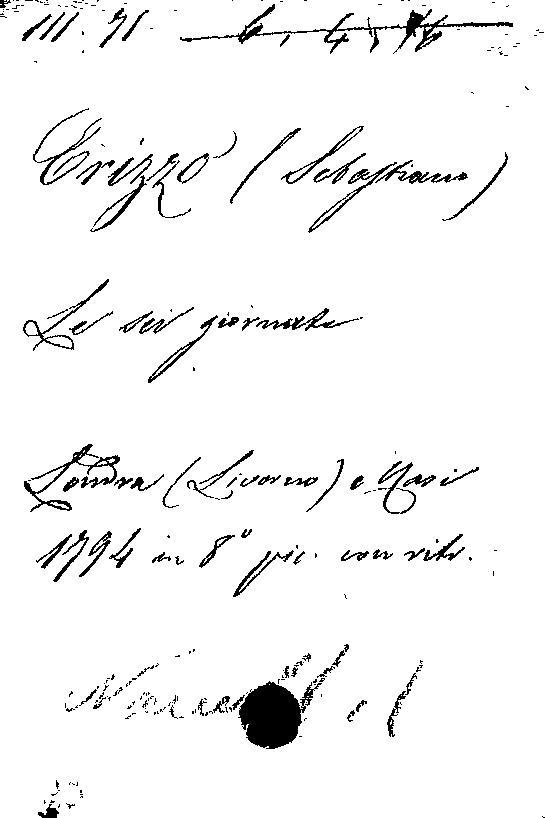 III. 71 6, 4, 76
Erizzo (Sebastiano)
Le sei giornate
Londra (Livorno) e Masi
1794 in 8° pic. con ritr.